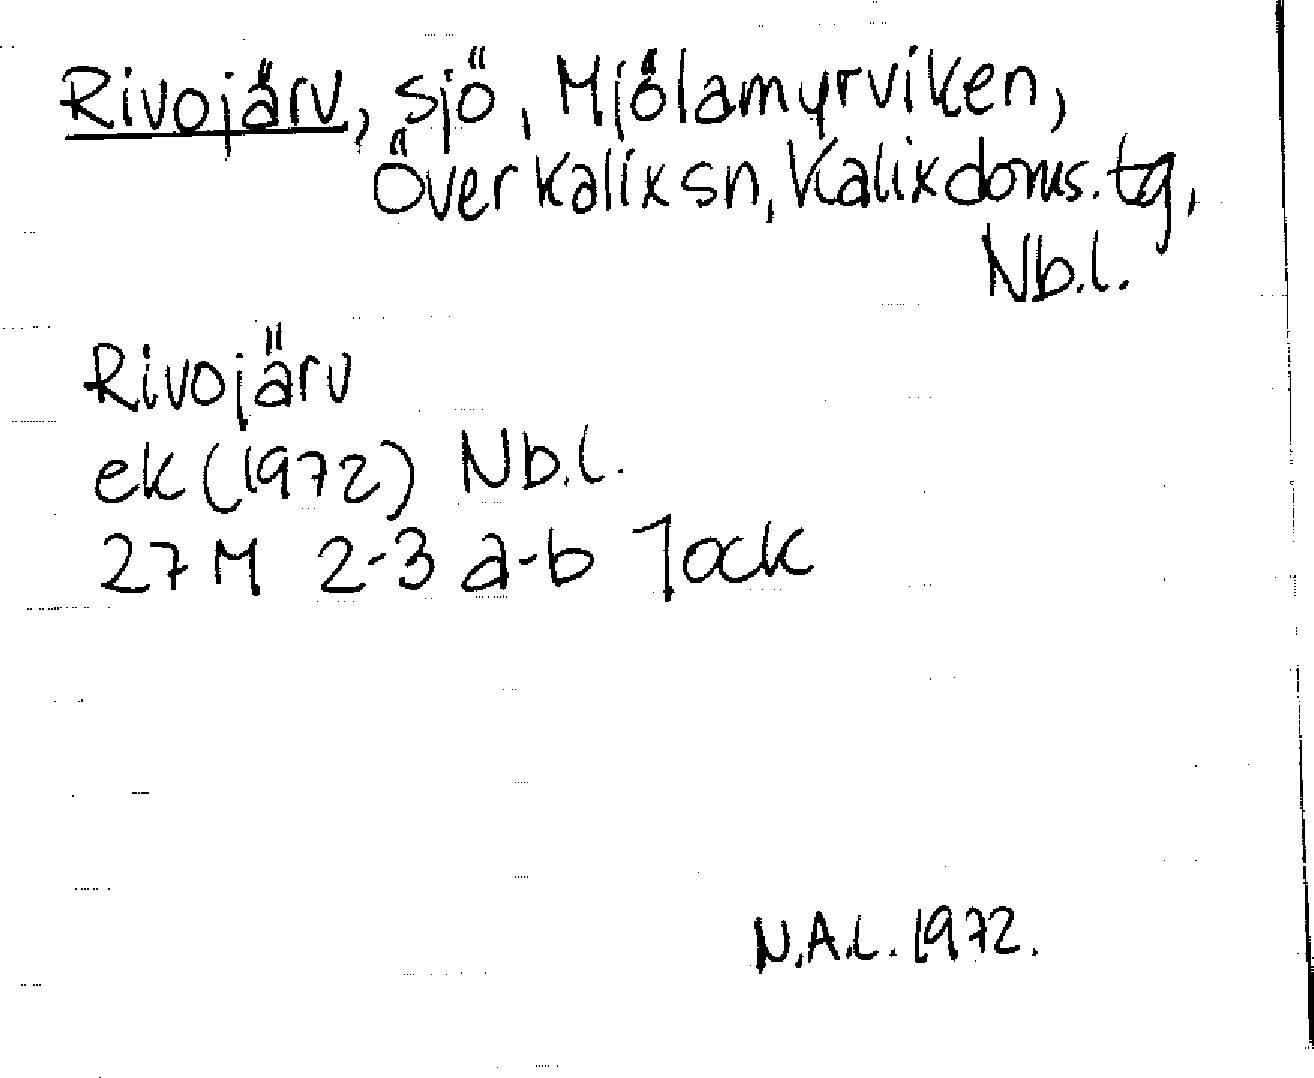 Rivojärv, sjö, Mjölamyrviken,
Överkalix sn, Kalix doms. tg,
Nb.l.
Rivojärv
ek (1972) Nb.l.
27 M 2-3 a-b Jock
N.A.L. 1972.